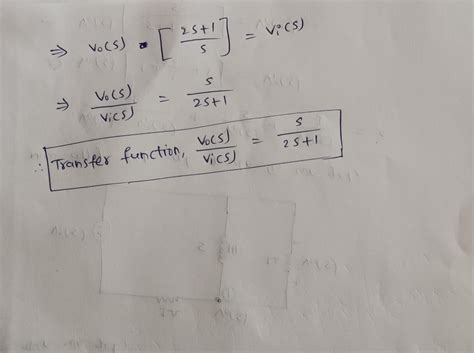 ⇒ V₀(s) · [ (2s+1)/s ] = Vi(s)
⇒ V₀(s)/Vi(s) = s/(2s+1)
∴ Transfer function, V₀(s)/Vi(s) = s/(2s+1)